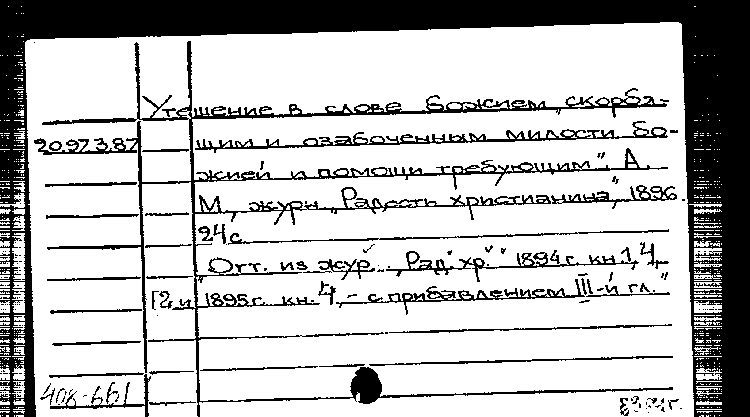 Утешение в слове Божием „скорбя-
20.97.3.87 щим и озабоченным милости Бо-
жией и помощи требующим". А.
М., журн. „Радость христианина", 1896.
24 с.
"Отт. из жур. „Рад. хр." 1894 г. кн. 1, 4,
12 и 1895 г. кн. 4, - с прибавлением III-й гл."
408-661